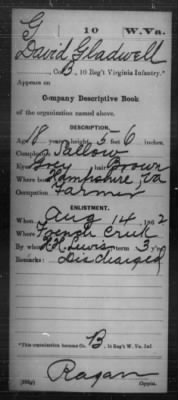 G 10 W.Va.
David Gladwell
Co. B, 10 Reg't Virginia Infantry.*
Appears on
Company Descriptive Book
of the organization named above.
DESCRIPTION.
Age 18 years; height 5 feet 6 inches.
Complexion Sallow
Eyes Grey; hair Brown
Where born Hampshire, Va
Occupation Farmer
ENLISTMENT.
When Aug 14, 1862
Where French Creek
By whom Lewis; term 3 y'rs
Remarks: Discharged
*This organization became Co. B, 10 Reg't W. Va. Inf.
Ragan
Copyist.